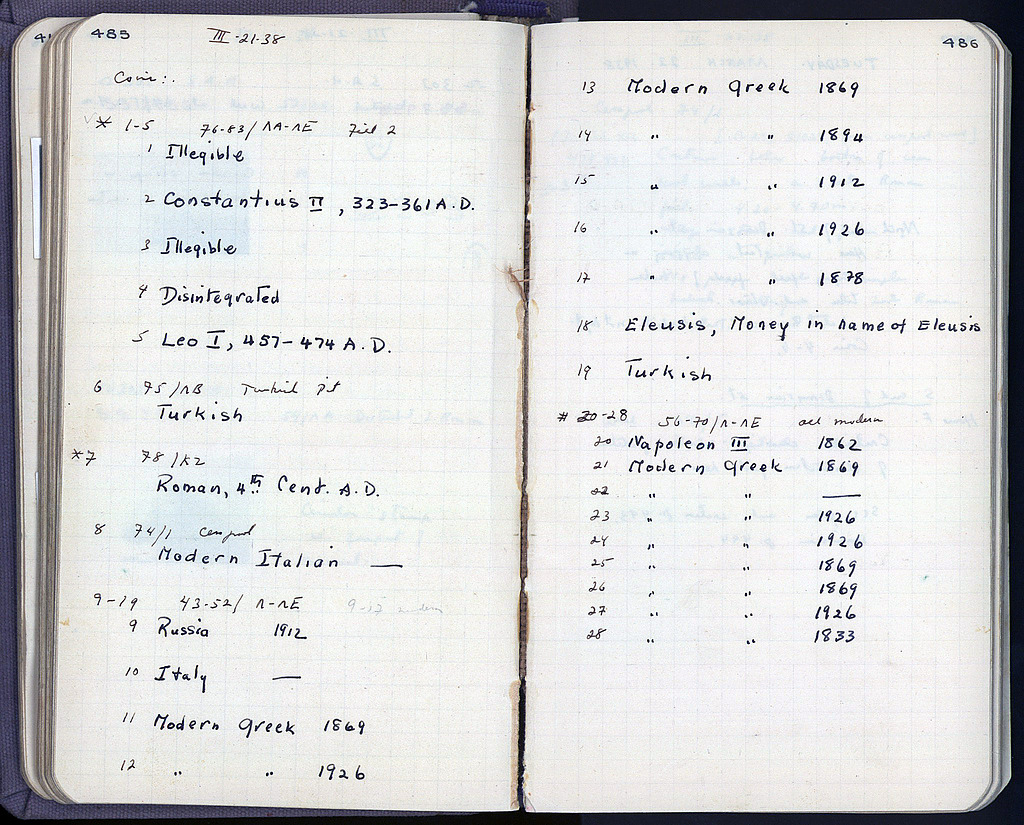 485
III-21-38
Coins:
* 1-5 76-83/ΛA-ΛE
1 Illegible
2 Constantius II, 323-361 A.D.
3 Illegible
4 Disintegrated
5 Leo I, 457-474 A.D.
6 75/ΛB Turkish Pit
Turkish
*7 78/KZ
Roman, 4th Cent. A.D.
8 74/1
Modern Italian —
9-19 43-52/Λ-ΛE 9-17 modern
9 Russia 1912
10 Italy —
11 Modern Greek 1869
12 " " 1926
486
13 Modern Greek 1869
14 " " 1894
15 " " 1912
16 " " 1926
17 " " 1878
18 Eleusis, Money in name of Eleusis
19 Turkish
# 20-28 56-70/Λ-ΛE all modern
20 Napoleon III 1862
21 Modern Greek 1869
22 " " —
23 " " 1926
24 " " 1926
25 " " 1869
26 " " 1869
27 " " 1926
28 " " 1833